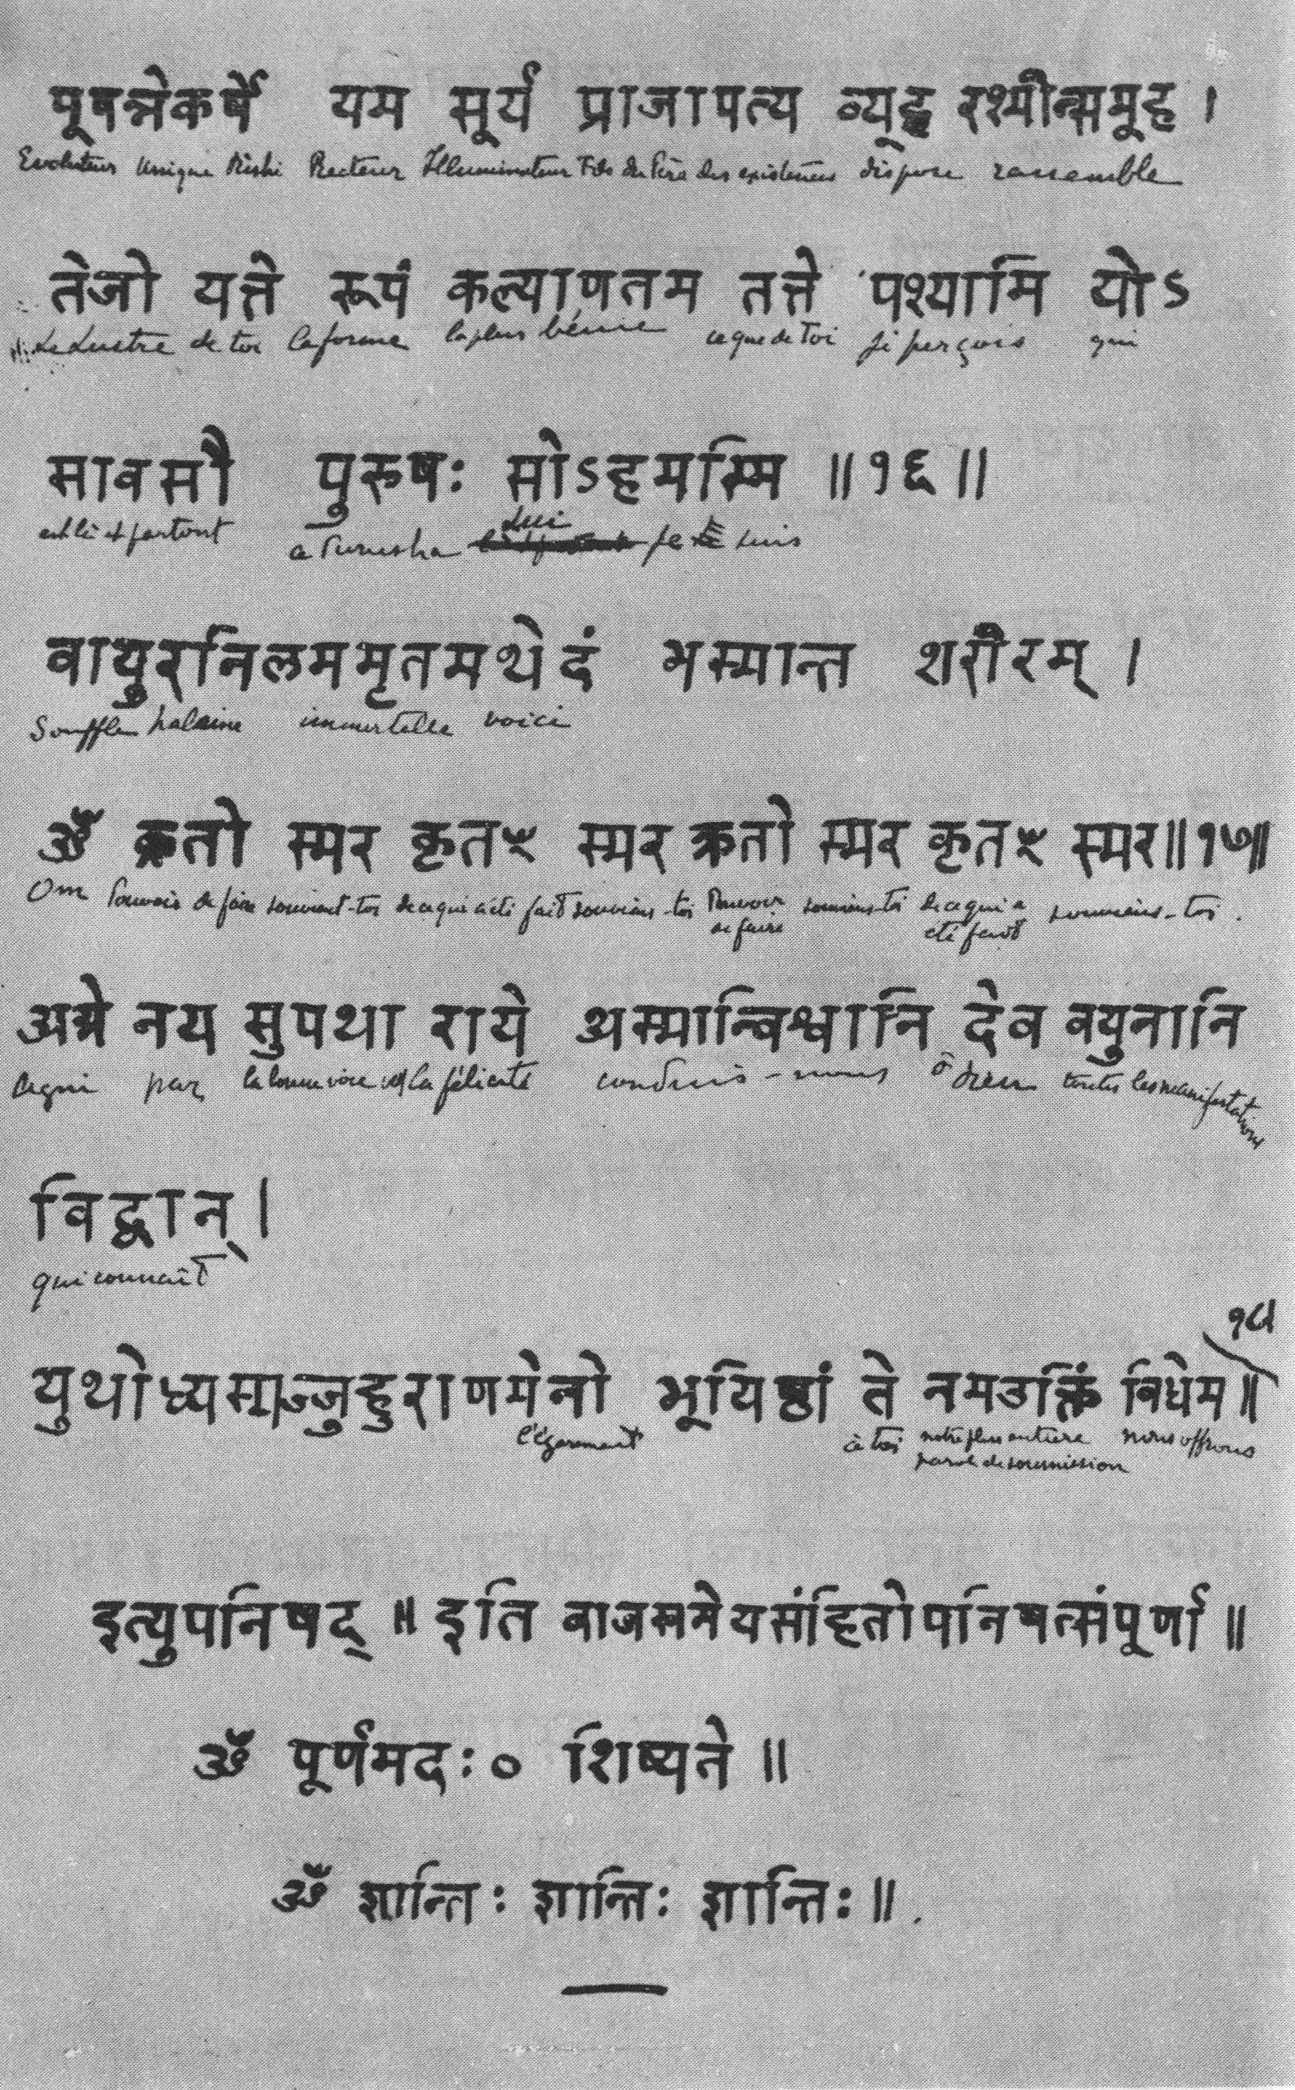 पूषन्नेकर्षे यम सूर्य प्राजापत्य व्यूह रश्मीन्समूह ।
Evoluteur unique Rishi Recteur Illuminateur Fils du Père des existences dispose rassemble
तेजो यत्ते रूपं कल्याणतम तत्ते पश्यामि योऽ
Le Lustre de toi la forme la plus bénie ce que de Toi je perçois qui
मावसौ पुरुषः सोऽहमस्मि ॥१६॥
est là et partout ce Purusha Lui je suis
वायुरनिलममृतमथेदं भस्मान्त शरीरम् ।
Souffle haleine immortelle voici
ॐ क्रतो स्मर कृतꣳ स्मर क्रतो स्मर कृतꣳ स्मर॥१७॥
Om Pouvoir de faire souvient-toi de ce qui a été fait souviens-toi Pouvoir de faire souviens-toi de ce qui a été fait souviens-toi.
अग्ने नय सुपथा राये अस्मान्विश्वानि देव वयुनानि
Agni par la bonne voie vers la félicité conduis-nous ô dieu toutes les manifestations
विद्वान्।
qui connaît
१८।
युथोध्यस्माज्जुहुराणमेनो भूयिष्ठां ते नमउक्तिं विधेम॥
l'égarement à toi notre plus entière parole de soumission nous offrons
इत्युपनिषद् ॥ इति वाजसनेयसंहितोपनिषत्संपूर्णा ॥
ॐ पूर्णमदः० शिष्यते ॥
ॐ शान्तिः शान्तिः शान्तिः॥.